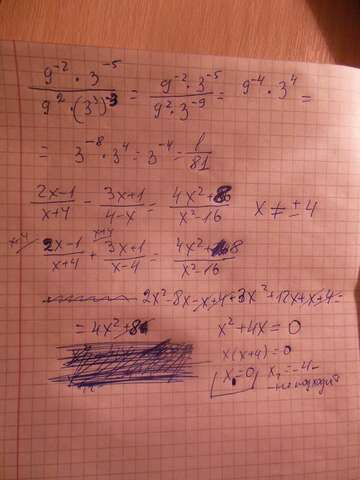 9⁻² · 3⁻⁵ / 9² · (3³)⁻³ = 9⁻² · 3⁻⁵ / 9² · 3⁻⁹ = 9⁻⁴ · 3⁴ =
= 3⁻⁸ · 3⁴ = 3⁻⁴ = 1/81
2x-1 / x+4 - 3x+1 / 4-x = 4x²+8 / x²-16 x ≠ ± 4
2x-1 / x+4 + 3x+1 / x-4 = 4x²+8 / x²-16
2x²-8x-x+4+3x²+12x+x+4=
= 4x²+8 x²+4x=0
x(x+4)=0
x₁=0 x₂=-4-
не подходит